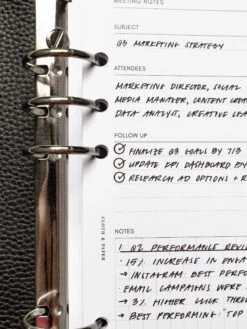 MEETING NOTES
SUBJECT
Q3 MARKETING STRATEGY
ATTENDEES
MARKETING DIRECTOR, SOCIAL
MEDIA MANAGER, CONTENT CREA
DATA ANALYST, CREATIVE LEA
FOLLOW UP
FINALIZE Q3 GOALS BY 7/3
UPDATE KPI DASHBOARD BY
RESEARCH AD OPTIONS + R
CLOTH & PAPER
NOTES
1. Q2 PERFORMANCE REVIE
· 15% INCREASE IN ENGA
→ INSTAGRAM BEST PERFO
· EMAIL CAMPAIGNS WERE
→ 3% HIGHER CLICK THRO
→ BEST PERFORMING: "TOP